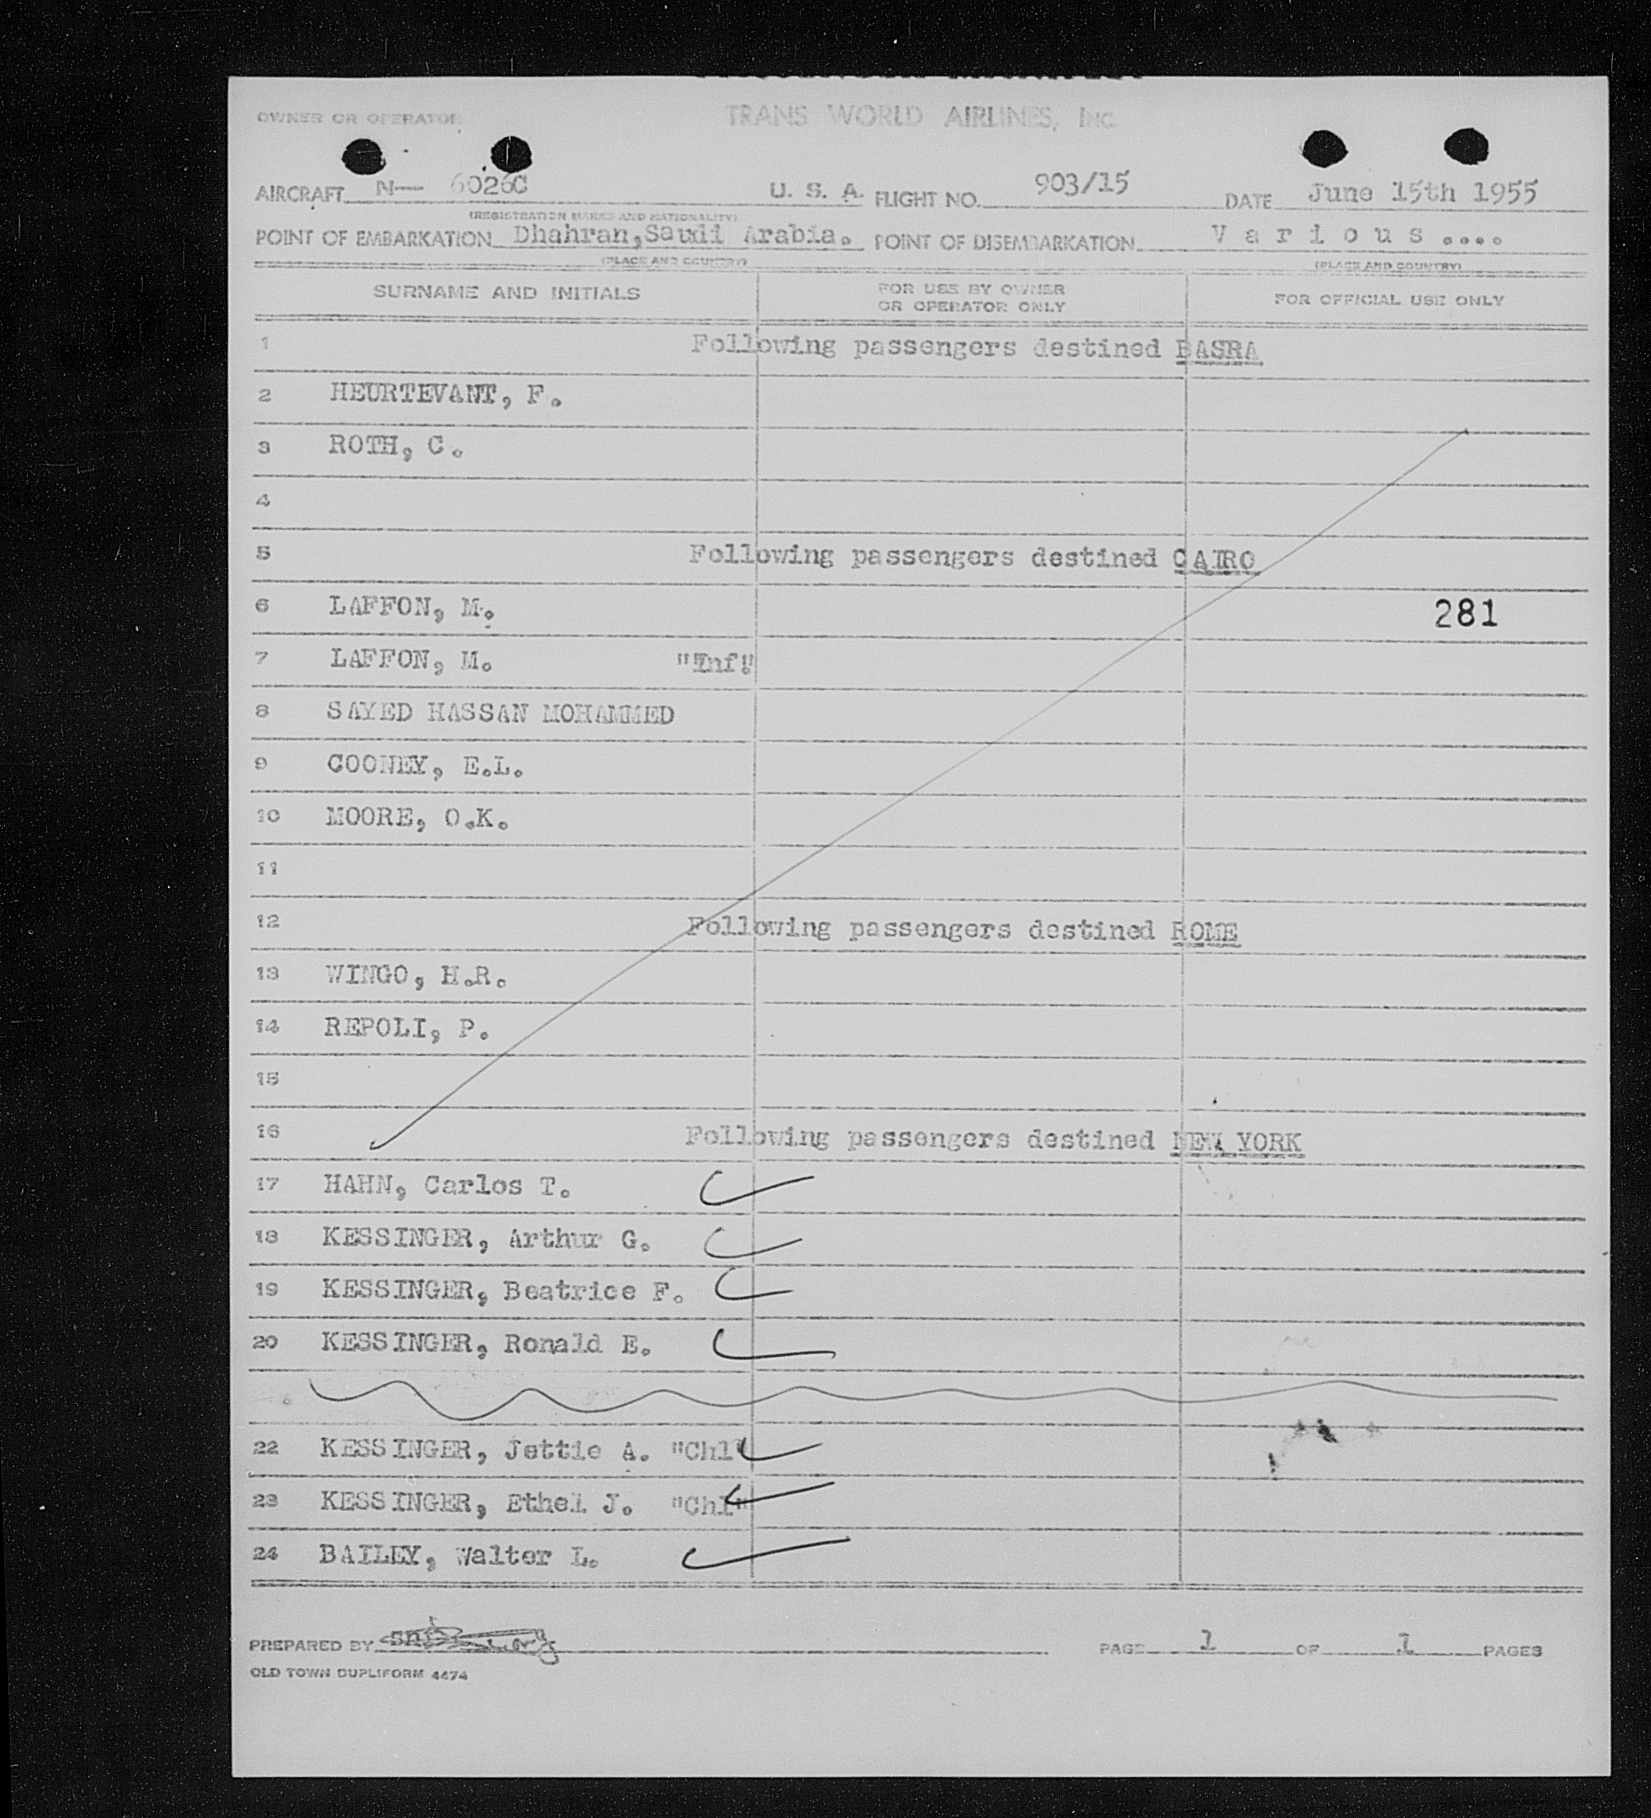 OWNER OR OPERATOR TRANS WORLD AIRLINES, Inc.
AIRCRAFT N— 6026C U. S. A. FLIGHT NO. 903/15 DATE June 15th 1955
(REGISTRATION MARKS AND NATIONALITY)
POINT OF EMBARKATION Dhahran,Saudi Arabia. POINT OF DISEMBARKATION V a r i o u s ....
(PLACE AND COUNTRY) (PLACE AND COUNTRY)
SURNAME AND INITIALS FOR USE BY OWNER OR OPERATOR ONLY FOR OFFICIAL USE ONLY
1 Following passengers destined BASRA
2 HEURTEVANT, F.
3 ROTH, C.
4
5 Following passengers destined CAIRO
6 LAFFON, M. 281
7 LAFFON, M. "Inf"
8 SAYED HASSAN MOHAMMED
9 COONEY, E.L.
10 MOORE, O.K.
11
12 Following passengers destined ROME
13 WINGO, H.R.
14 REPOLI, P.
15
16 Following passengers destined NEW YORK
17 HAHN, Carlos T.
18 KESSINGER, Arthur G.
19 KESSINGER, Beatrice F.
20 KESSINGER, Ronald E.
22 KESSINGER, Jettie A. "Chl"
23 KESSINGER, Ethel J. "Chl"
24 BAILEY, Walter L.
PREPARED BY PAGE 1 OF 1 PAGES
OLD TOWN DUPLIFORM 4474